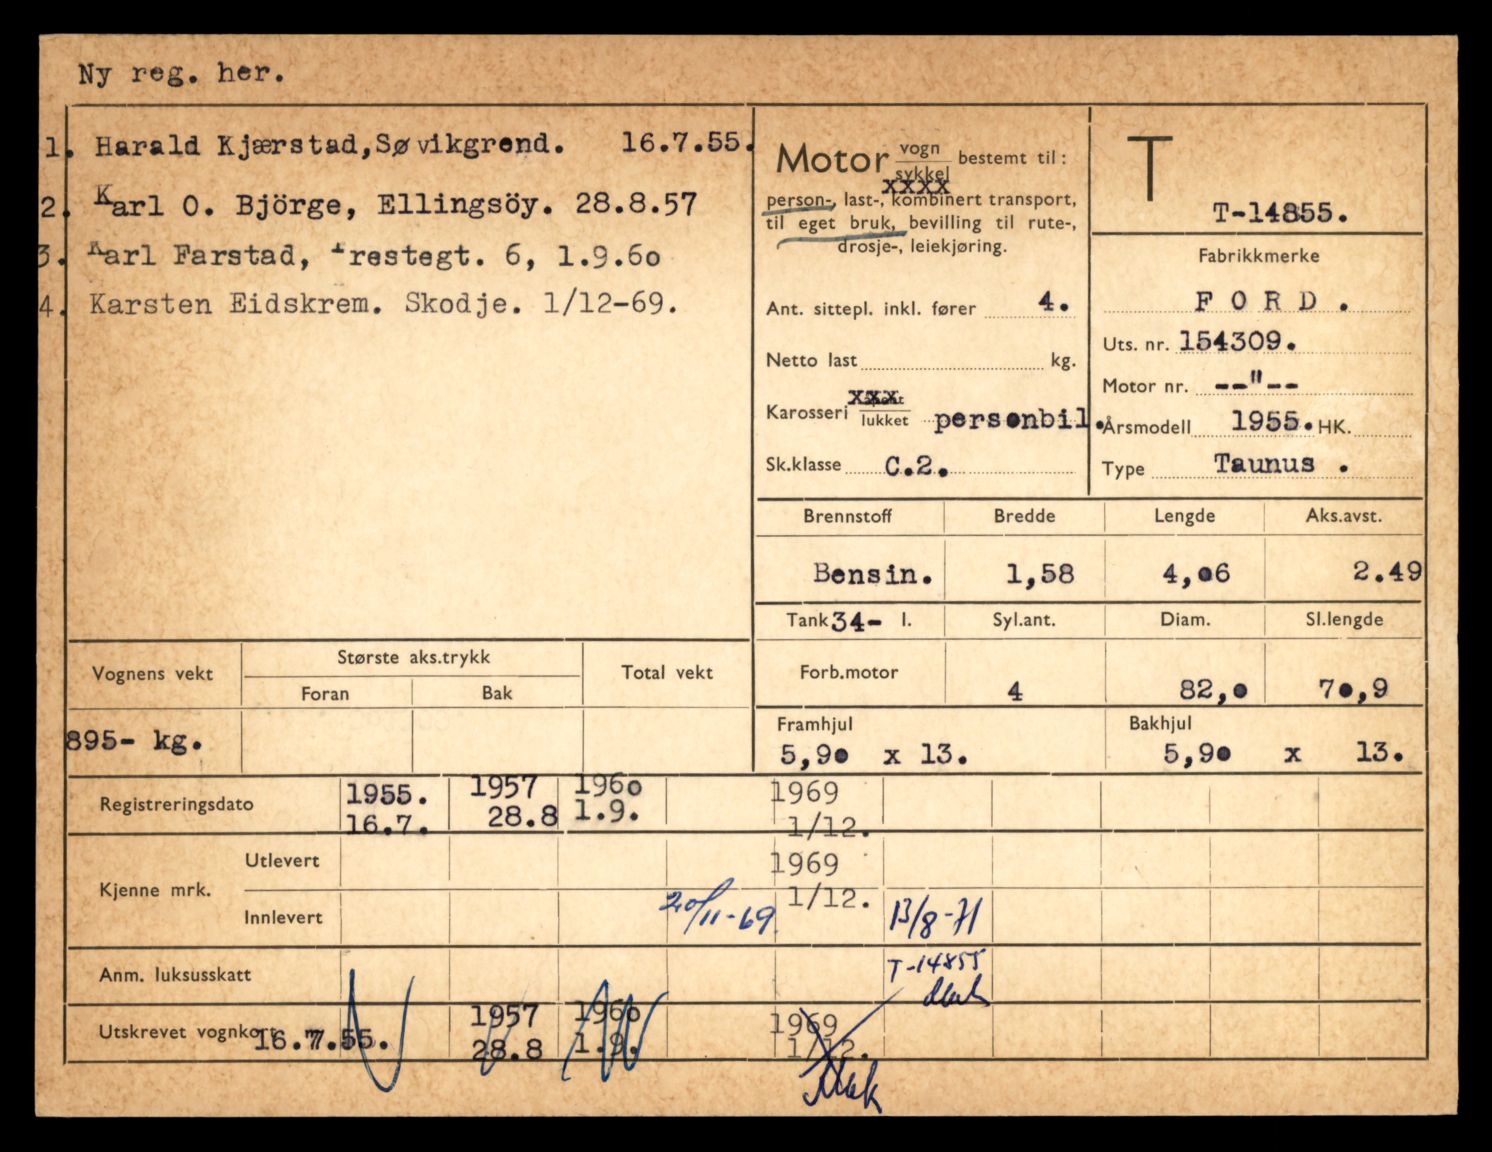 Ny reg. her.
1. Harald Kjærstad,Søvikgrend. 16.7.55.
2. Karl O. Björge, Ellingsöy. 28.8.57
3. Karl Farstad, Prestegt. 6, 1.9.6o
4. Karsten Eidskrem. Skodje. 1/12-69.
Motor vogn sykkel bestemt til:
xxxx
person-, last-, kombinert transport,
til eget bruk, bevilling til rute-,
drosje-, leiekjøring.
Ant. sittepl. inkl. fører 4.
Netto last kg.
Karosseri xxx åpent lukket personbil.
Sk.klasse C.2.
T
T-14855.
Fabrikkmerke
FORD.
Uts. nr. 154309.
Motor nr. --"--
Årsmodell 1955. HK.
Type Taunus .
Brennstoff Bredde Lengde Aks.avst.
Bensin. 1,58 4,06 2.49
Tank 34- l. Syl.ant. Diam. Sl.lengde
Forb.motor 4 82,0 70,9
Framhjul Bakhjul
5,90 x 13. 5,90 x 13.
Vognens vekt Største aks.trykk Total vekt
Foran Bak
895- kg.
Registreringsdato 1955. 1957 196o 1969
16.7. 28.8 1.9. 1/12.
Kjenne mrk. Utlevert 1969
1/12.
Innlevert 20/11-69 13/8-71
Anm. luksusskatt T-14855
Utskrevet vognkort 16.7.55. 1957 196o 1969
28.8 1.9. 1/12.